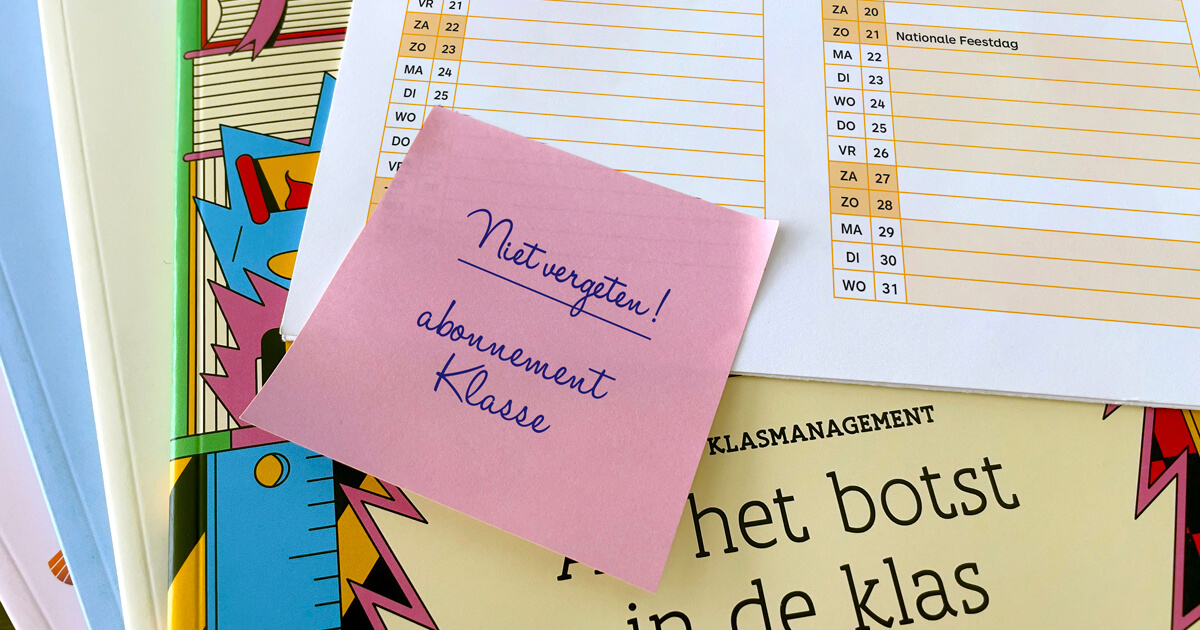 VR 21
ZA 22
ZO 23
MA 24
DI 25
WO
DO
ZA 20
ZO 21 Nationale Feestdag
MA 22
DI 23
WO 24
DO 25
VR 26
ZA 27
ZO 28
MA 29
DI 30
WO 31
Niet vergeten!
abonnement
Klasse
KLASMANAGEMENT
het botst
in de klas